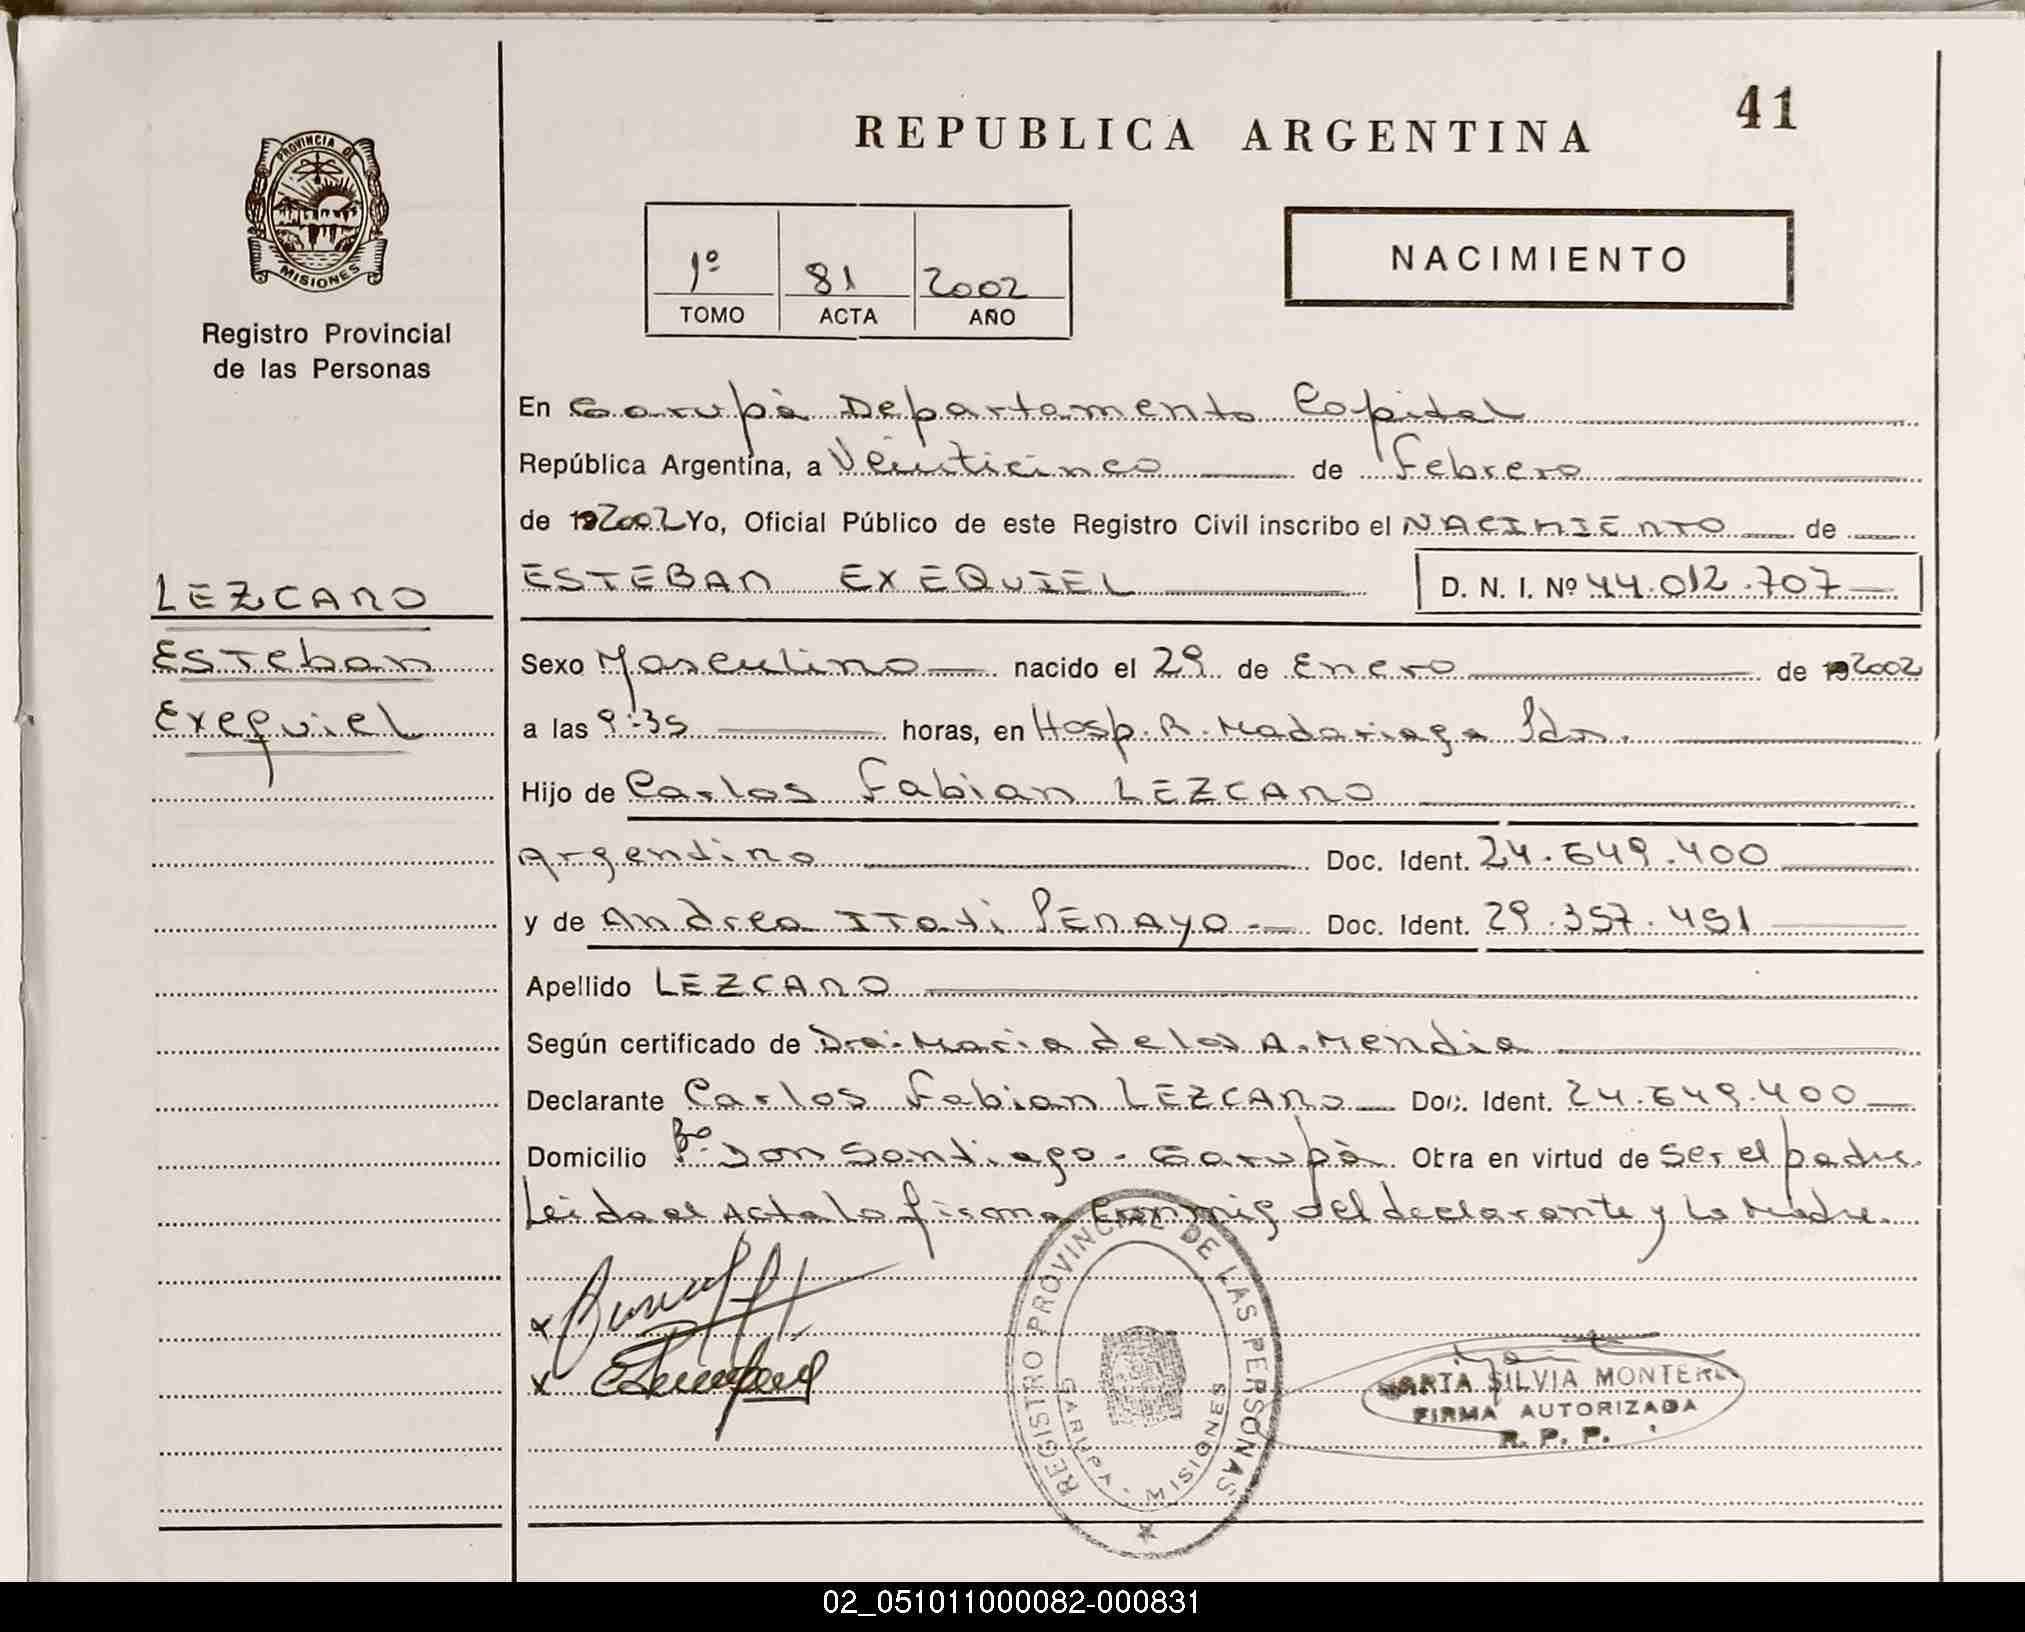 41
REPUBLICA ARGENTINA
PROVINCIA DE
MISIONES
Registro Provincial
de las Personas
NACIMIENTO
1º 81 2002
TOMO ACTA AÑO
En Garupà Departamento Capital
República Argentina, a Veinticinco de Febrero
de 192002 Yo, Oficial Público de este Registro Civil inscribo el NACIMIENTO de
ESTEBAN EXEQUIEL D. N. I. Nº 44.012.707
LEZCANO
Esteban
Exequiel
Sexo Masculino nacido el 29 de Enero de 192002
a las 9:35 horas, en Hosp. R. Madariaga Pdas.
Hijo de Carlos Fabian LEZCANO
Argentino Doc. Ident. 24.649.400
y de Andrea ITati PENAYO Doc. Ident. 29.357.451
Apellido LEZCANO
Según certificado de Dra. Maria de los A. Mendia
Declarante Carlos Fabian LEZCANO Doc. Ident. 24.649.400
Domicilio Bº Don Santiago - Garupà Obra en virtud de ser el padre.
Leida el Acta la firma conmig el declarante y la Madre.
REGISTRO PROVINCIAL DE LAS PERSONAS
GARUPA - MISIONES
MARTA SILVIA MONTERO
FIRMA AUTORIZADA
R. P. P.
02_051011000082-000831